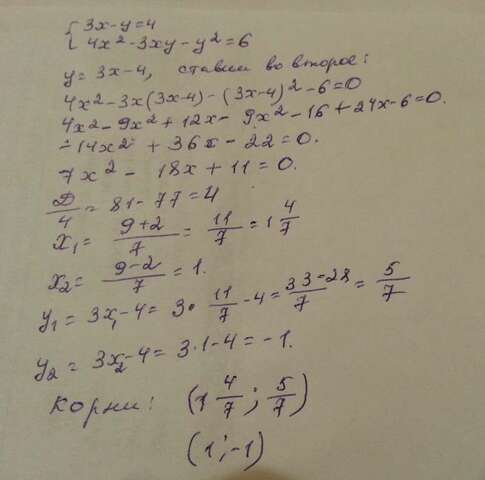 { 3x-y=4
{ 4x²-3xy-y²=6
y=3x-4, ставим во второе:
4x²-3x(3x-4)-(3x-4)²-6=0
4x²-9x²+12x-9x²-16+24x-6=0.
-14x²+36x-22=0.
7x²-18x+11=0.
D/4=81-77=4
x₁=(9+2)/7=11/7=1 4/7
x₂=(9-2)/7=1.
y₁=3x₁-4=3·11/7-4=(33-28)/7=5/7
y₂=3x₂-4=3·1-4=-1.
корни: (1 4/7; 5/7)
(1;-1)